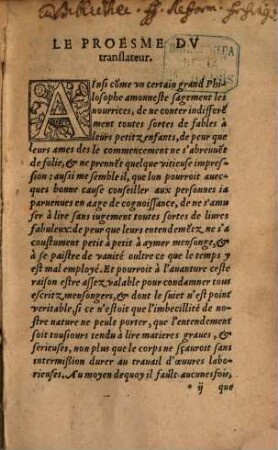 LE PROESME DV
translateur.
AInsi cõme vn certain grand Phi-
losophe amonneste sagement les
nourrices, de ne conter indifferẽ
ment toutes sortes de fables à
leurs petitz enfants, de peur que
leurs ames des le commencement ne s'abreuuẽt
de folie, & ne prennẽt quelque vitieuse impres-
sion: aussi me semble il, que lon pourroit auec-
ques bonne cause conseiller aux personnes ia
paruenues en aage de cognoissance, de ne s'amu
ser à lire sans iugement toutes sortes de liures
fabuleux: de peur que leurs entendemẽtz ne s'a
coustument petit à petit à aymer mensonge, &
à se paistre de vanité oultre ce que le temps y
est mal employé. Et pourroit à l'auanture ceste
raison estre assez valable pour condamner tous
escritz mensongers, & dont le suiet n'est point
veritable, si ce n'estoit que l'imbecillité de no-
stre nature ne peult porter, que l'entendement
soit tousiours tendu à lire matieres graues, &
serieuses, non plus que le corps ne sçauroit sans
intermißion durer au trauail d'œuures labo-
rieuses. Au moyen dequoy il fault aucunesfois,
* ij que